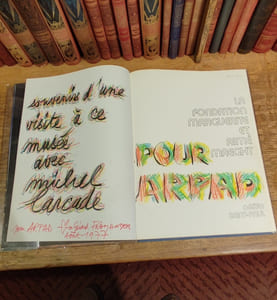 souvenir d'une
visite à ce
musée
avec
michel
Larcade
LA
FONDATION
MARGUERITE
ET
AIMÉ
MAEGHT
POUR
ARPAD
SAINT-PAUL